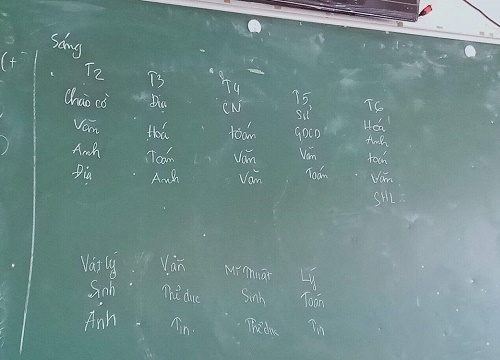 Sáng
T2 T3 T4 T5 T6
Chào cờ Địa CN Sử Hóa
Văn Hoá toán GDCD Anh
Anh Toán Văn Văn toán
Địa Anh Văn Toán Văn
SHL
Vật lý Văn Mĩ Thuật Lý
Sinh Thể dục Sinh Toán
Anh Tin Thể dục Tin